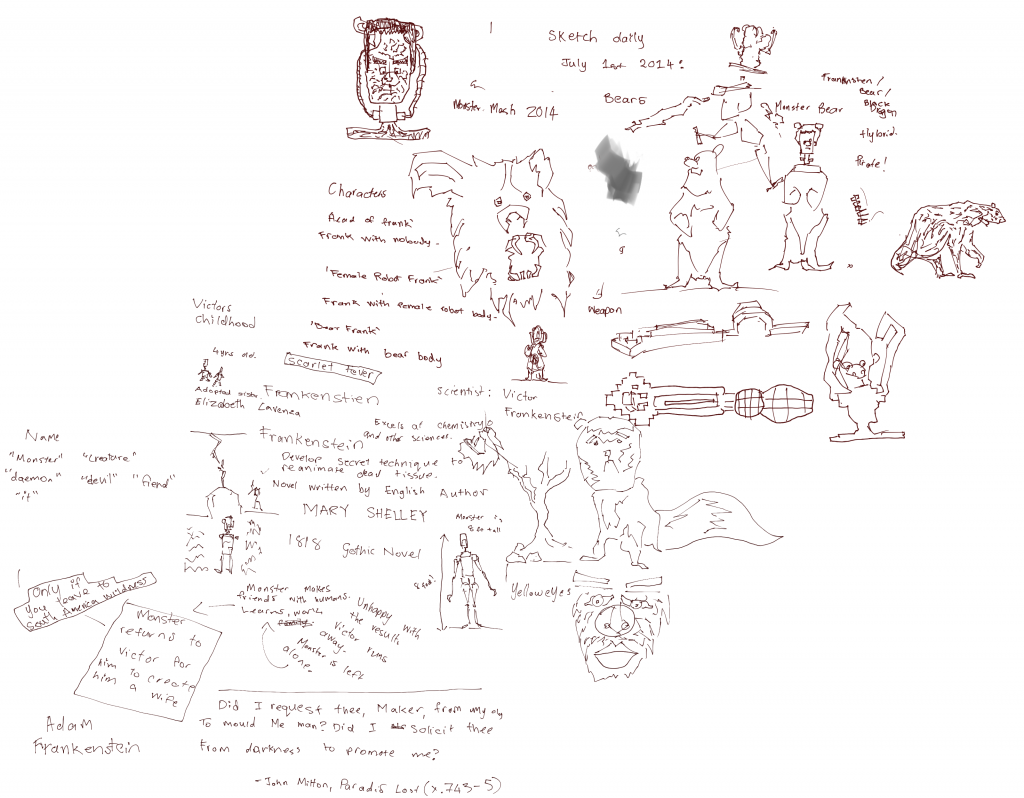 Sketch daily
July 1st 2014:
Monster Mash 2014
Bears
Monster Bear
Frankenstien/
Bear/
Black
Dragon
Hybrid.
Pirate!
Characters
Head of frank'
Frank with nobody.
'Female Robot Frank'
Frank with female robot body.
'Bear Frank'
Frank with bear body
Weapon
Victors
Childhood
4yrs old.
Scarlet fever
Adopted sister.
Elizabeth Lavenza
Frankenstien
scientist: Victor
Frankenstein
Excels at chemistry
and other sciences.
Frankenstein
Develop secret technique to
reanimate dead tissue.
Novel written by English Author
MARY SHELLEY
1818 Gothic Novel
Name
"Monster" "creature"
"daemon" "devil" "fiend"
"it"
Monster is
8 ft tall
8 foot
Yelloweyes
Only if
you leave to
South America wildness
Monster
returns to
Victor for
him to create
him a wife
Monster makes
friends with humans.
Learns, work
Unhappy with
the results
Victor runs
away.
Monster is left
alone.
Adam
Frankenstein
Did I request thee, Maker, from my clay
To mould Me man? Did I solicit thee
From darkness to promote me?
- John Milton, Paradis Lost (x.743-5)